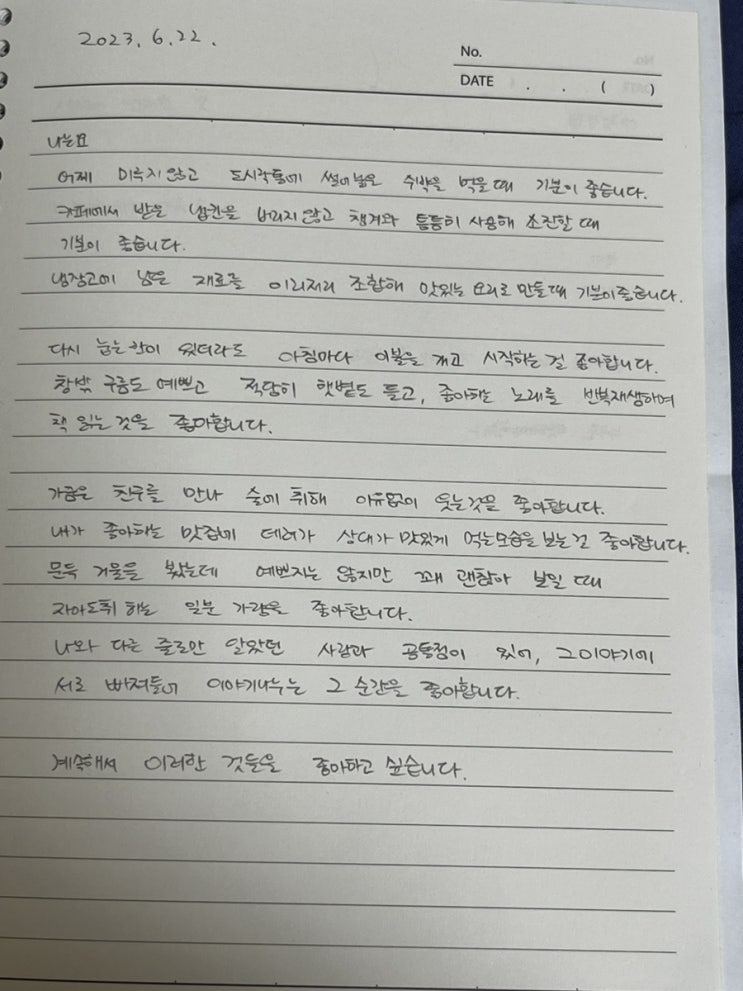 2023. 6. 22.
No.
DATE . . ( )
나는요
어제 미루지 않고 도시락통에 썰어넣은 수박을 먹을 때 기분이 좋습니다.
카페에서 받은 냅킨을 버리지 않고 챙겨와 틈틈히 사용해 소진할 때
기분이 좋습니다.
냉장고에 남은 재료를 이리저리 조합해 맛있는 요리로 만들때 기분이좋습니다.
다시 눕는 한이 있더라도 아침마다 이불을 개고 시작하는 걸 좋아합니다.
창밖 구름도 예쁘고 적당히 햇볕도 들고, 좋아하는 노래를 반복재생하며
책 읽는 것을 좋아합니다.
가끔은 친구를 만나 술에 취해 이유없이 웃는것을 좋아합니다.
내가 좋아하는 맛집에 데려가 상대가 맛있게 먹는모습을 보는걸 좋아합니다.
문득 거울을 봤는데 예쁘지는 않지만 꽤 괜찮아 보일 때
자아도취 하는 일분 가량을 좋아합니다.
나와 다른 줄로만 알았던 사람과 공통점이 있어, 그이야기에
서로 빠져들어 이야기나누는 그 순간을 좋아합니다.
계속해서 이러한 것들을 좋아하고 싶습니다.